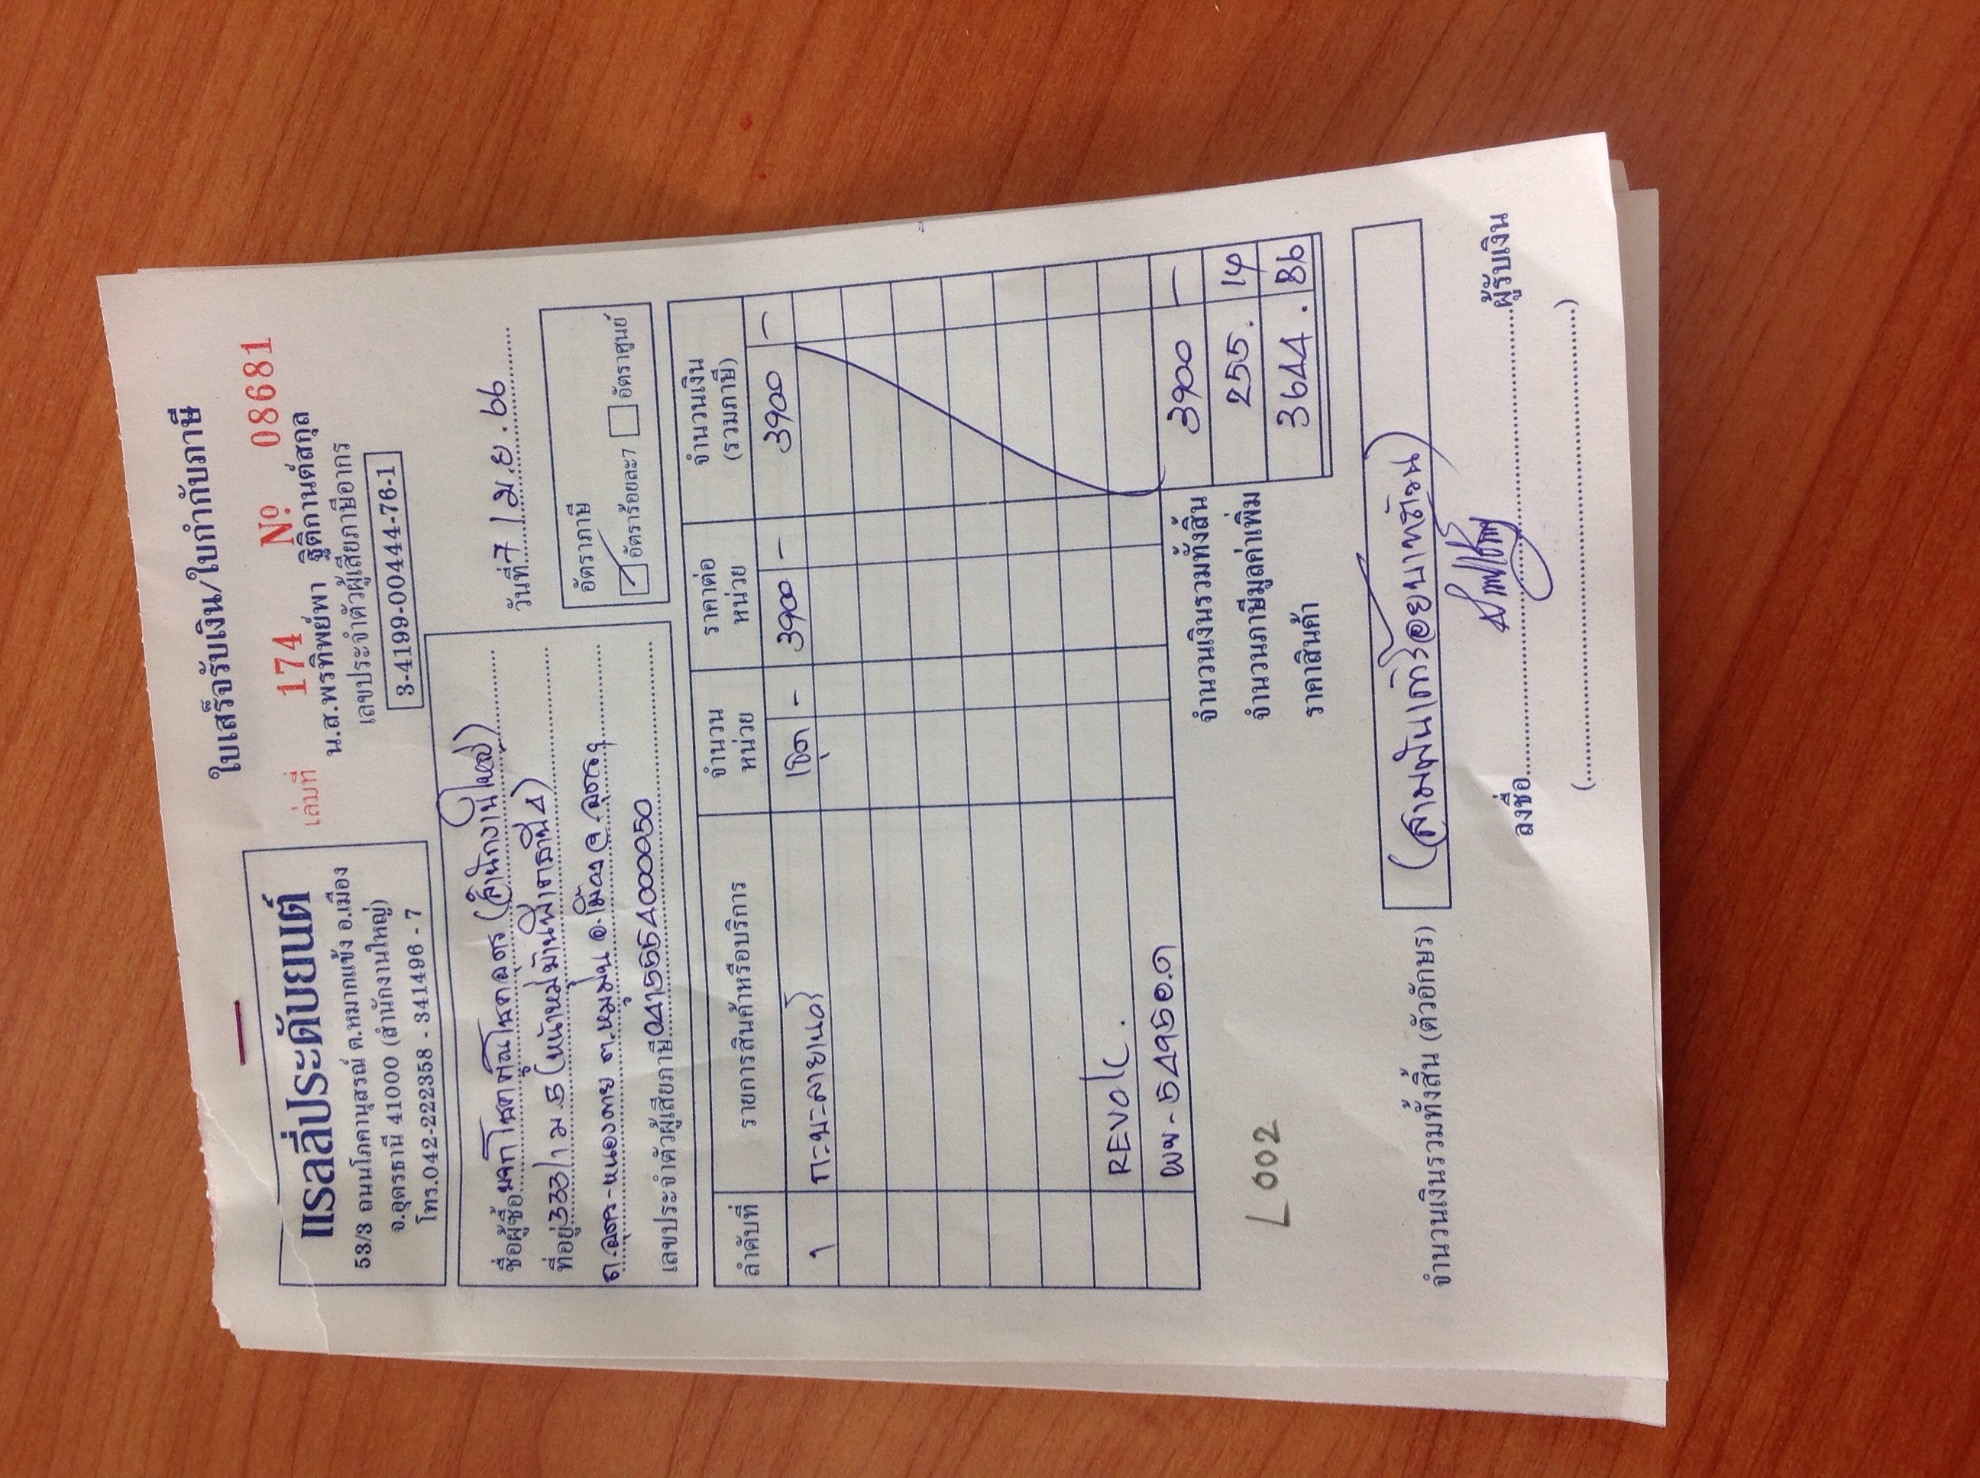 ใบเสร็จรับเงิน/ใบกำกับภาษี
แรลลี่ประดับยนต์
53/3 ถนนโภคานุสรณ์ ต.หมากแข้ง อ.เมือง
จ.อุดรธานี 41000 (สำนักงานใหญ่)
โทร.042-222358 - 341496 - 7
เล่มที่ 174 Nº 08681
น.ส.พรทิพย์พา ฐิติกานต์สกุล
เลขประจำตัวผู้เสียภาษีอากร
3-4199-00444-76-1
วันที่ 7 / เม.ย. 66
ชื่อผู้ซื้อ (สำนักงานใหญ่)
ที่อยู่ 333/1 ม.5 (หน้าหมู่บ้านพิมานธานี 4)
ถ.อุดร-หนองคาย ต.หมูม่น อ.เมือง จ.อุดรฯ
เลขประจำตัวผู้เสียภาษี 0415554000050
อัตราภาษี
อัตราร้อยละ7 อัตราศูนย์
ลำดับที่ รายการสินค้าหรือบริการ จำนวนหน่วย ราคาต่อหน่วย จำนวนเงิน (รวมภาษี)
1 กะบะลายเนอร์ 1ชุด - 3900 - 3900 -
REVO/C.
ผพ-5495อ.ด
จำนวนเงินรวมทั้งสิ้น 3900 -
จำนวนภาษีมูลค่าเพิ่ม 255. 14
ราคาสินค้า 3644 . 86
L002
จำนวนเงินรวมทั้งสิ้น (ตัวอักษร) (สามพันเก้าร้อยบาทถ้วน)
ลงชื่อ ผู้รับเงิน
( )